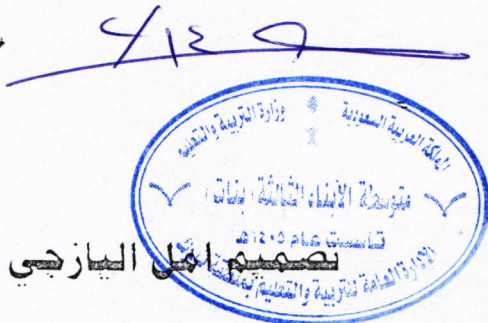 المملكة العربية السعودية
وزارة التربية والتعليم
متوسطة الأبناء الثالثة (بنات)
تأسست عام ١٤٠٥هـ
الإدارة العامة للتربية والتعليم بمنطقة
تصميم امل اليازجي